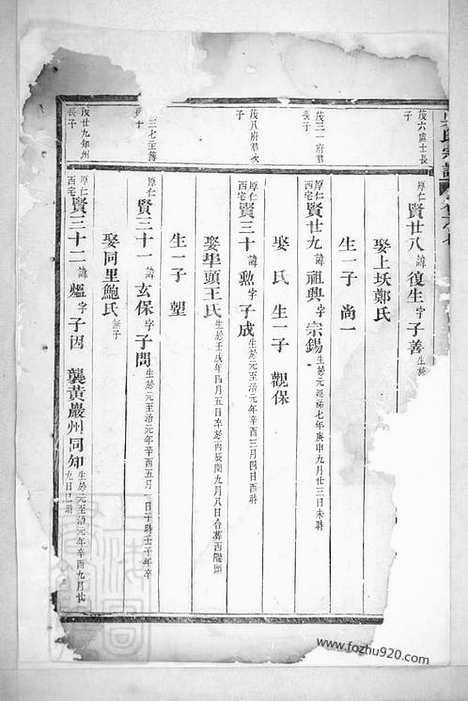 茂六處士長子
厚仁西宅賢廿八諱復生字子善生於
娶上坎鄭氏
生一子尚一
茂三一府君長子
厚仁西宅賢廿九諱祖興字宗錫生於元延祐七年庚申九月廿三日未時
娶氏生一子觀保
茂八府君次子
厚仁西宅賢三十諱勲字子成生於元至治元年辛酉三月四日酉時
娶毕頭王氏生於壬戌年四月五日卒於丙辰閏九月八日合葬西隴頭
生一子塱
三七主簿子
厚仁賢三十一諱玄保字子問生於元至治元年辛酉五月日子時壬子年卒
娶同里鮑氏無子
茂廿九知州長子
厚仁西宅賢三十二諱爔字子因襲黃巖州同知生於元至治元年辛酉九月廿九日巳時
www.fozhu920.com